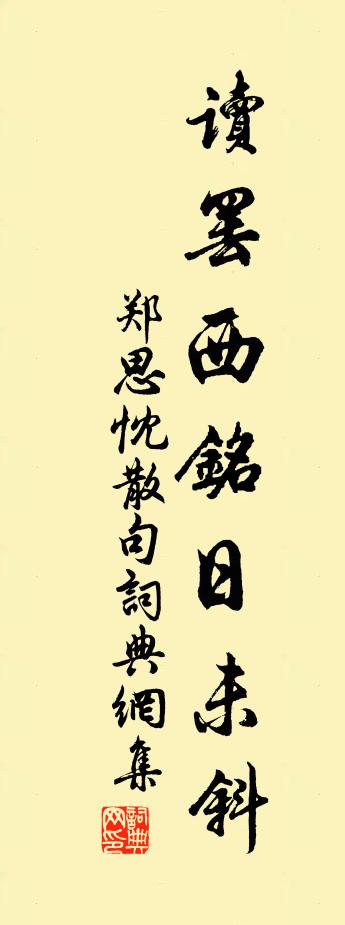 讀罢西銘日未斜
郑思忱散句詞典網集
詞典網印